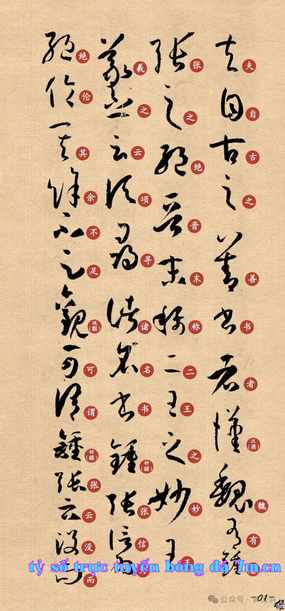 夫自古之善书者汉魏有钟
张之绝晋末称二王之妙王
羲之云顷寻诸名书钟张信
绝伦其余不足观可谓钟张云没而
tỷ số trực tuyến bóng đá 7m.cn
公众号
01